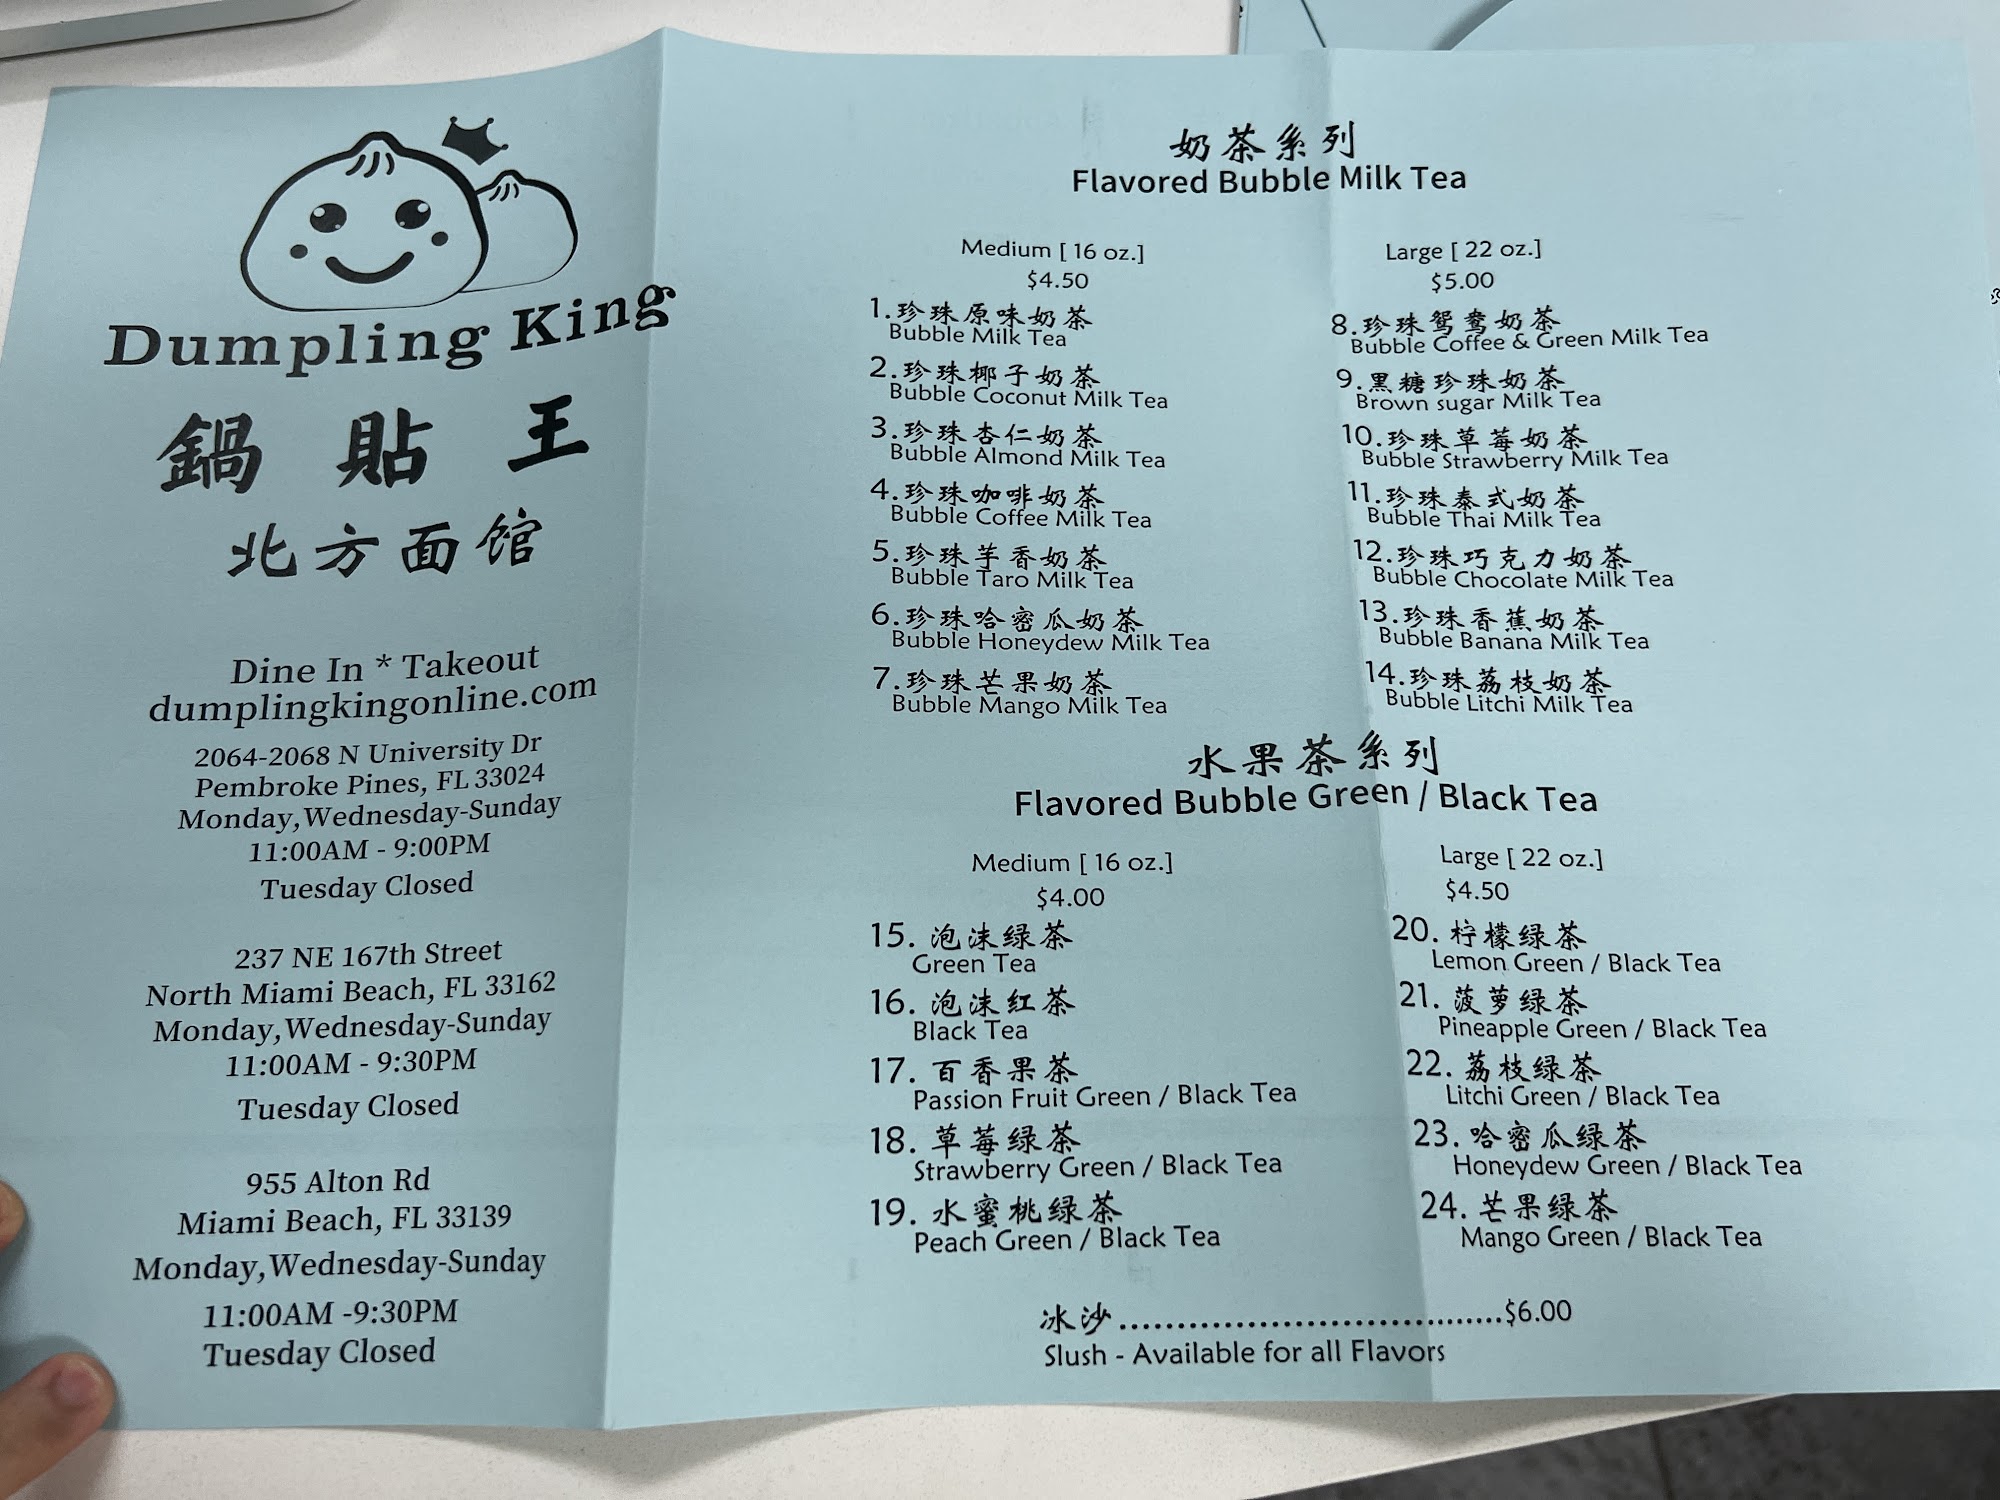 Dumpling King
鍋貼王
北方面馆
Dine In * Takeout
dumplingkingonline.com
2064-2068 N University Dr
Pembroke Pines, FL 33024
Monday,Wednesday-Sunday
11:00AM - 9:00PM
Tuesday Closed
237 NE 167th Street
North Miami Beach, FL 33162
Monday,Wednesday-Sunday
11:00AM - 9:30PM
Tuesday Closed
955 Alton Rd
Miami Beach, FL 33139
Monday,Wednesday-Sunday
11:00AM -9:30PM
Tuesday Closed
奶茶系列
Flavored Bubble Milk Tea
Medium [ 16 oz.]
$4.50
1.珍珠原味奶茶
Bubble Milk Tea
2.珍珠椰子奶茶
Bubble Coconut Milk Tea
3.珍珠杏仁奶茶
Bubble Almond Milk Tea
4.珍珠咖啡奶茶
Bubble Coffee Milk Tea
5.珍珠芋香奶茶
Bubble Taro Milk Tea
6.珍珠哈密瓜奶茶
Bubble Honeydew Milk Tea
7.珍珠芒果奶茶
Bubble Mango Milk Tea
Large [ 22 oz.]
$5.00
8.珍珠鸳鸯奶茶
Bubble Coffee & Green Milk Tea
9.黑糖珍珠奶茶
Brown sugar Milk Tea
10.珍珠草莓奶茶
Bubble Strawberry Milk Tea
11.珍珠泰式奶茶
Bubble Thai Milk Tea
12.珍珠巧克力奶茶
Bubble Chocolate Milk Tea
13.珍珠香蕉奶茶
Bubble Banana Milk Tea
14.珍珠荔枝奶茶
Bubble Litchi Milk Tea
水果茶系列
Flavored Bubble Green / Black Tea
Medium [ 16 oz.]
$4.00
15. 泡沫绿茶
Green Tea
16. 泡沫红茶
Black Tea
17. 百香果茶
Passion Fruit Green / Black Tea
18. 草莓绿茶
Strawberry Green / Black Tea
19. 水蜜桃绿茶
Peach Green / Black Tea
Large [ 22 oz.]
$4.50
20. 柠檬绿茶
Lemon Green / Black Tea
21. 菠萝绿茶
Pineapple Green / Black Tea
22. 荔枝绿茶
Litchi Green / Black Tea
23. 哈密瓜绿茶
Honeydew Green / Black Tea
24. 芒果绿茶
Mango Green / Black Tea
冰沙......................................$6.00
Slush - Available for all Flavors